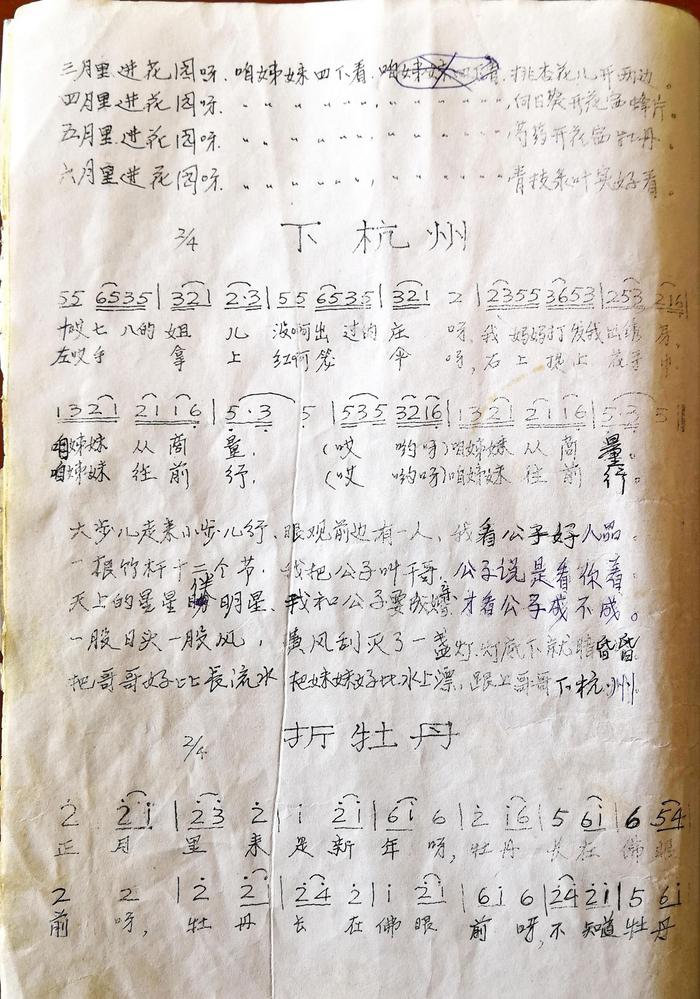 三月里进花园呀. 咱姊妹四下看. 咱姊妹四下看. 桃杏花儿开两边。
四月里进花园呀. 〃 〃 〃 〃 〃 , 〃 〃 〃 〃 〃 , 向日葵开花
五月里进花园呀. 〃 〃 〃 〃 〃 , 〃 〃 〃 〃 〃 , 芍药开花 牡丹.
六月里进花园呀. 〃 〃 〃 〃 〃 , 〃 〃 〃 〃 〃 , 青枝条叶实好看.
2/4 下杭州
55 6535 | 321 2·3 | 55 6535 | 321 2 | 2355 3653 | 253 216 |
十哎七 八的 姐 儿 没啊出 过的 庄 呀, 我 妈妈打发我出绣房,
左哎手 拿 上 红啊 伞 呀, 右上 提上
1321 2116 | 5·3 5 | 535 3216 | 1321 2116 | 5·3 5 ‖
咱姊妹 从 商 量. (哎 哟呀)咱姊妹 从 商 量。
咱姊妹 往 前 行. (哎 哟呀)咱姊妹 往 前 行。
大步儿走来小步儿行、眼观前边有一人, 我看公子好人品.
一根竹杆十二个节. 我把公子叫干哥, 公子说是看你着.
天上的星星伴明星、我和公子要成亲, 才看公子成不成。
一股日头一股风, 黄风刮灭了一盏灯. 灯底下就暗昏昏.
把哥哥好比长流水 把妹妹好比水上漂, 跟上哥哥下杭州.
2/4 折牡丹
2 2i | 23 2 | i 2i | 6i 6 | 2 i6 | 5 6i | 6 54
正 月 里 来 是 新 年 呀, 牡 丹 长 在 佛 眼
2 2 | 2 2i | 24 2 | i 2i | 6i 6 | 24 2i | 5 6i
前 呀, 牡 丹 长 在 佛 眼 前 呀, 不 知道 牡 丹